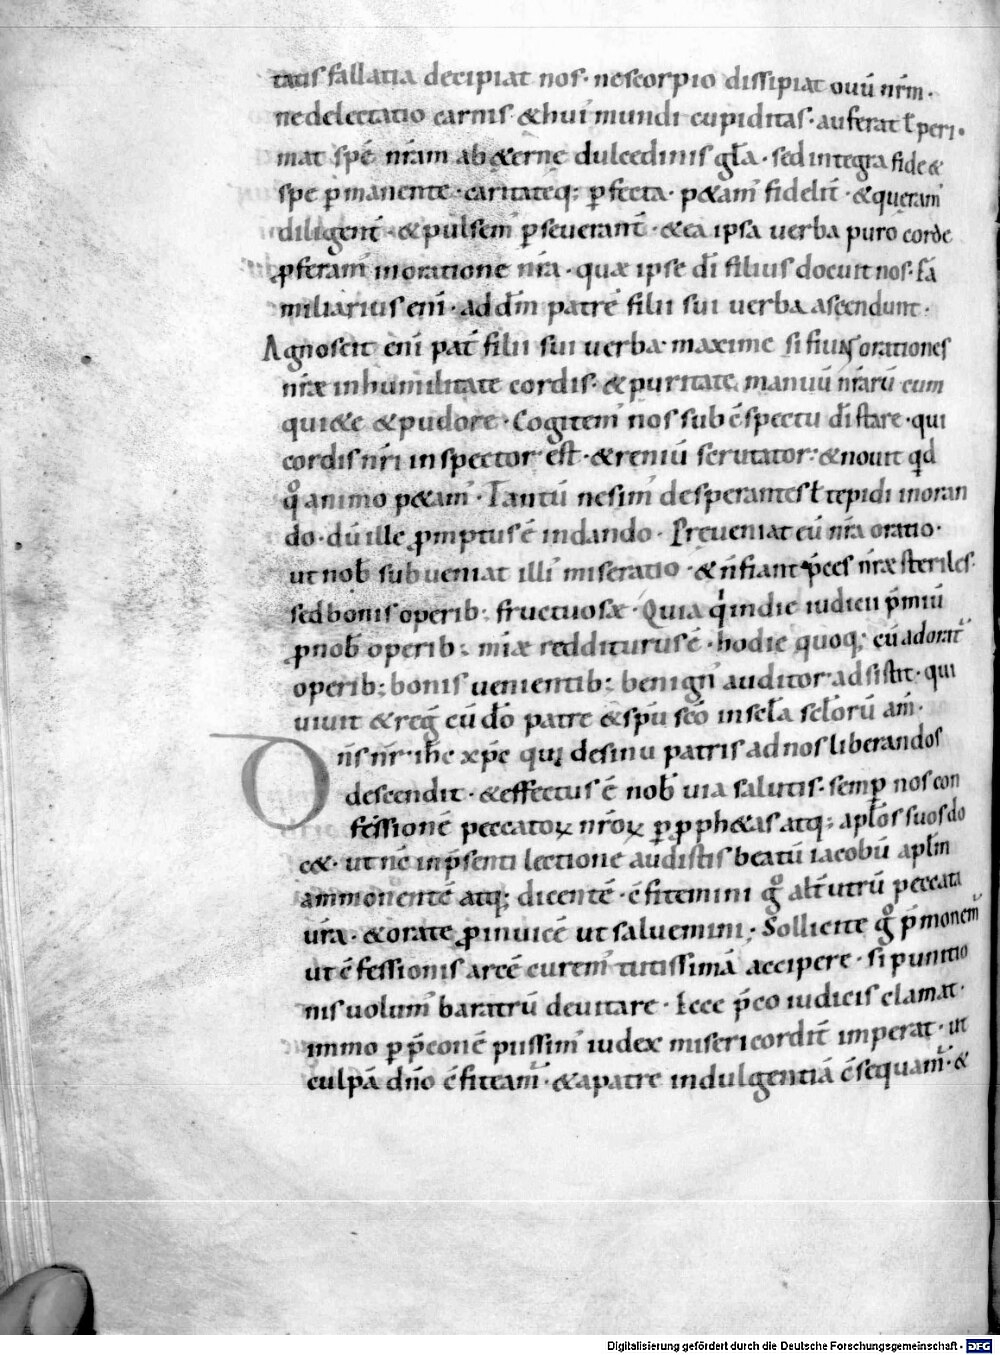 tatis fallatia decipiat nos· ne scorpio dissipiat ouū nr̄m·
ne delectatio carnis· & hui᾽ mundi cupiditas· auferat ł peri·
mat spē nr̄am ab &erne dulcedinis gła· sed integra fide &
spe ꝑmanente· caritateq; ꝑfecta· p&am᾽ fidelit̄· & queram᾽
diligent̄· & pulsem᾽ ꝑseuerant̄· & ea ipsa uerba puro corde
ꝓferam᾽ in oratione nr̄a· quæ ipse dī filius docuit nos· fa
miliarius eni᾽· ad dn̄m patrē filii sui uerba ascendunt·
Agnoscit eni᾽ pat̄ filii sui uerba· maxime si fiunt orationes
nr̄æ in humilitate cordis· & puritate manuū nr̄arū cum
qui&e & pudore· Cogitem᾽ nos sub c̄spectu dī stare· qui
cordis nr̄i inspector est· & reniū scrutator· & nouit qd̄
qͦ animo p&am᾽· Tantū ne sim᾽ desperantes ł tepidi in oran
do· dū ille ꝓmptus ē in dando· Preueniat eū nr̄a oratio·
ut nob̄ subueniat illi᾽ miseratio· & n̄ fiant p̄ces nr̄æ steriles·
sed bonis operib; fructuosæ· Quia qͥ in die iudicii p̄miū
ꝓ nob̄ operib; miæ redditurus ē· hodie quoq; eū adorat᾽
operib; bonis uenientib; benign᾽ auditor adsistit· qui
uiuit & reḡ cū dō patre & spū scō in scła scłorū am̄·
Dn̄s nr̄ ih̄c xp̄e qui de sinu patris ad nos liberandos
descendit· & effectus ē nob̄ uia salutis· semꝑ nos con
fessionē peccatoꝝ nr̄oꝝ ꝑ pph&as atq; apłos suos do
c&· ut nc̄ in p̄senti lectione audistis beatū iacobū apłm
ammonentē atq; dicentē· c̄fitemini gͦ alt̄utrū peccata
ur̄a· & orate ꝓ inuicē ut saluemini; Sollicite gͦ p̄monem᾽
ut c̄fessionis arcē curem᾽ tutissimā accipere· si punitio
nis uolum᾽ baratrū deuitare· Ecce p̄co iudicis clamat·
immo ꝑ p̄conē piissim᾽ iudex misericordit̄ imperat· ut
culpā dn̄o c̄fiteam᾽· & a patre indulgentiā c̄sequam᾽· &
Digitalisierung gefördert durch die Deutsche Forschungsgemeinschaft - DFG